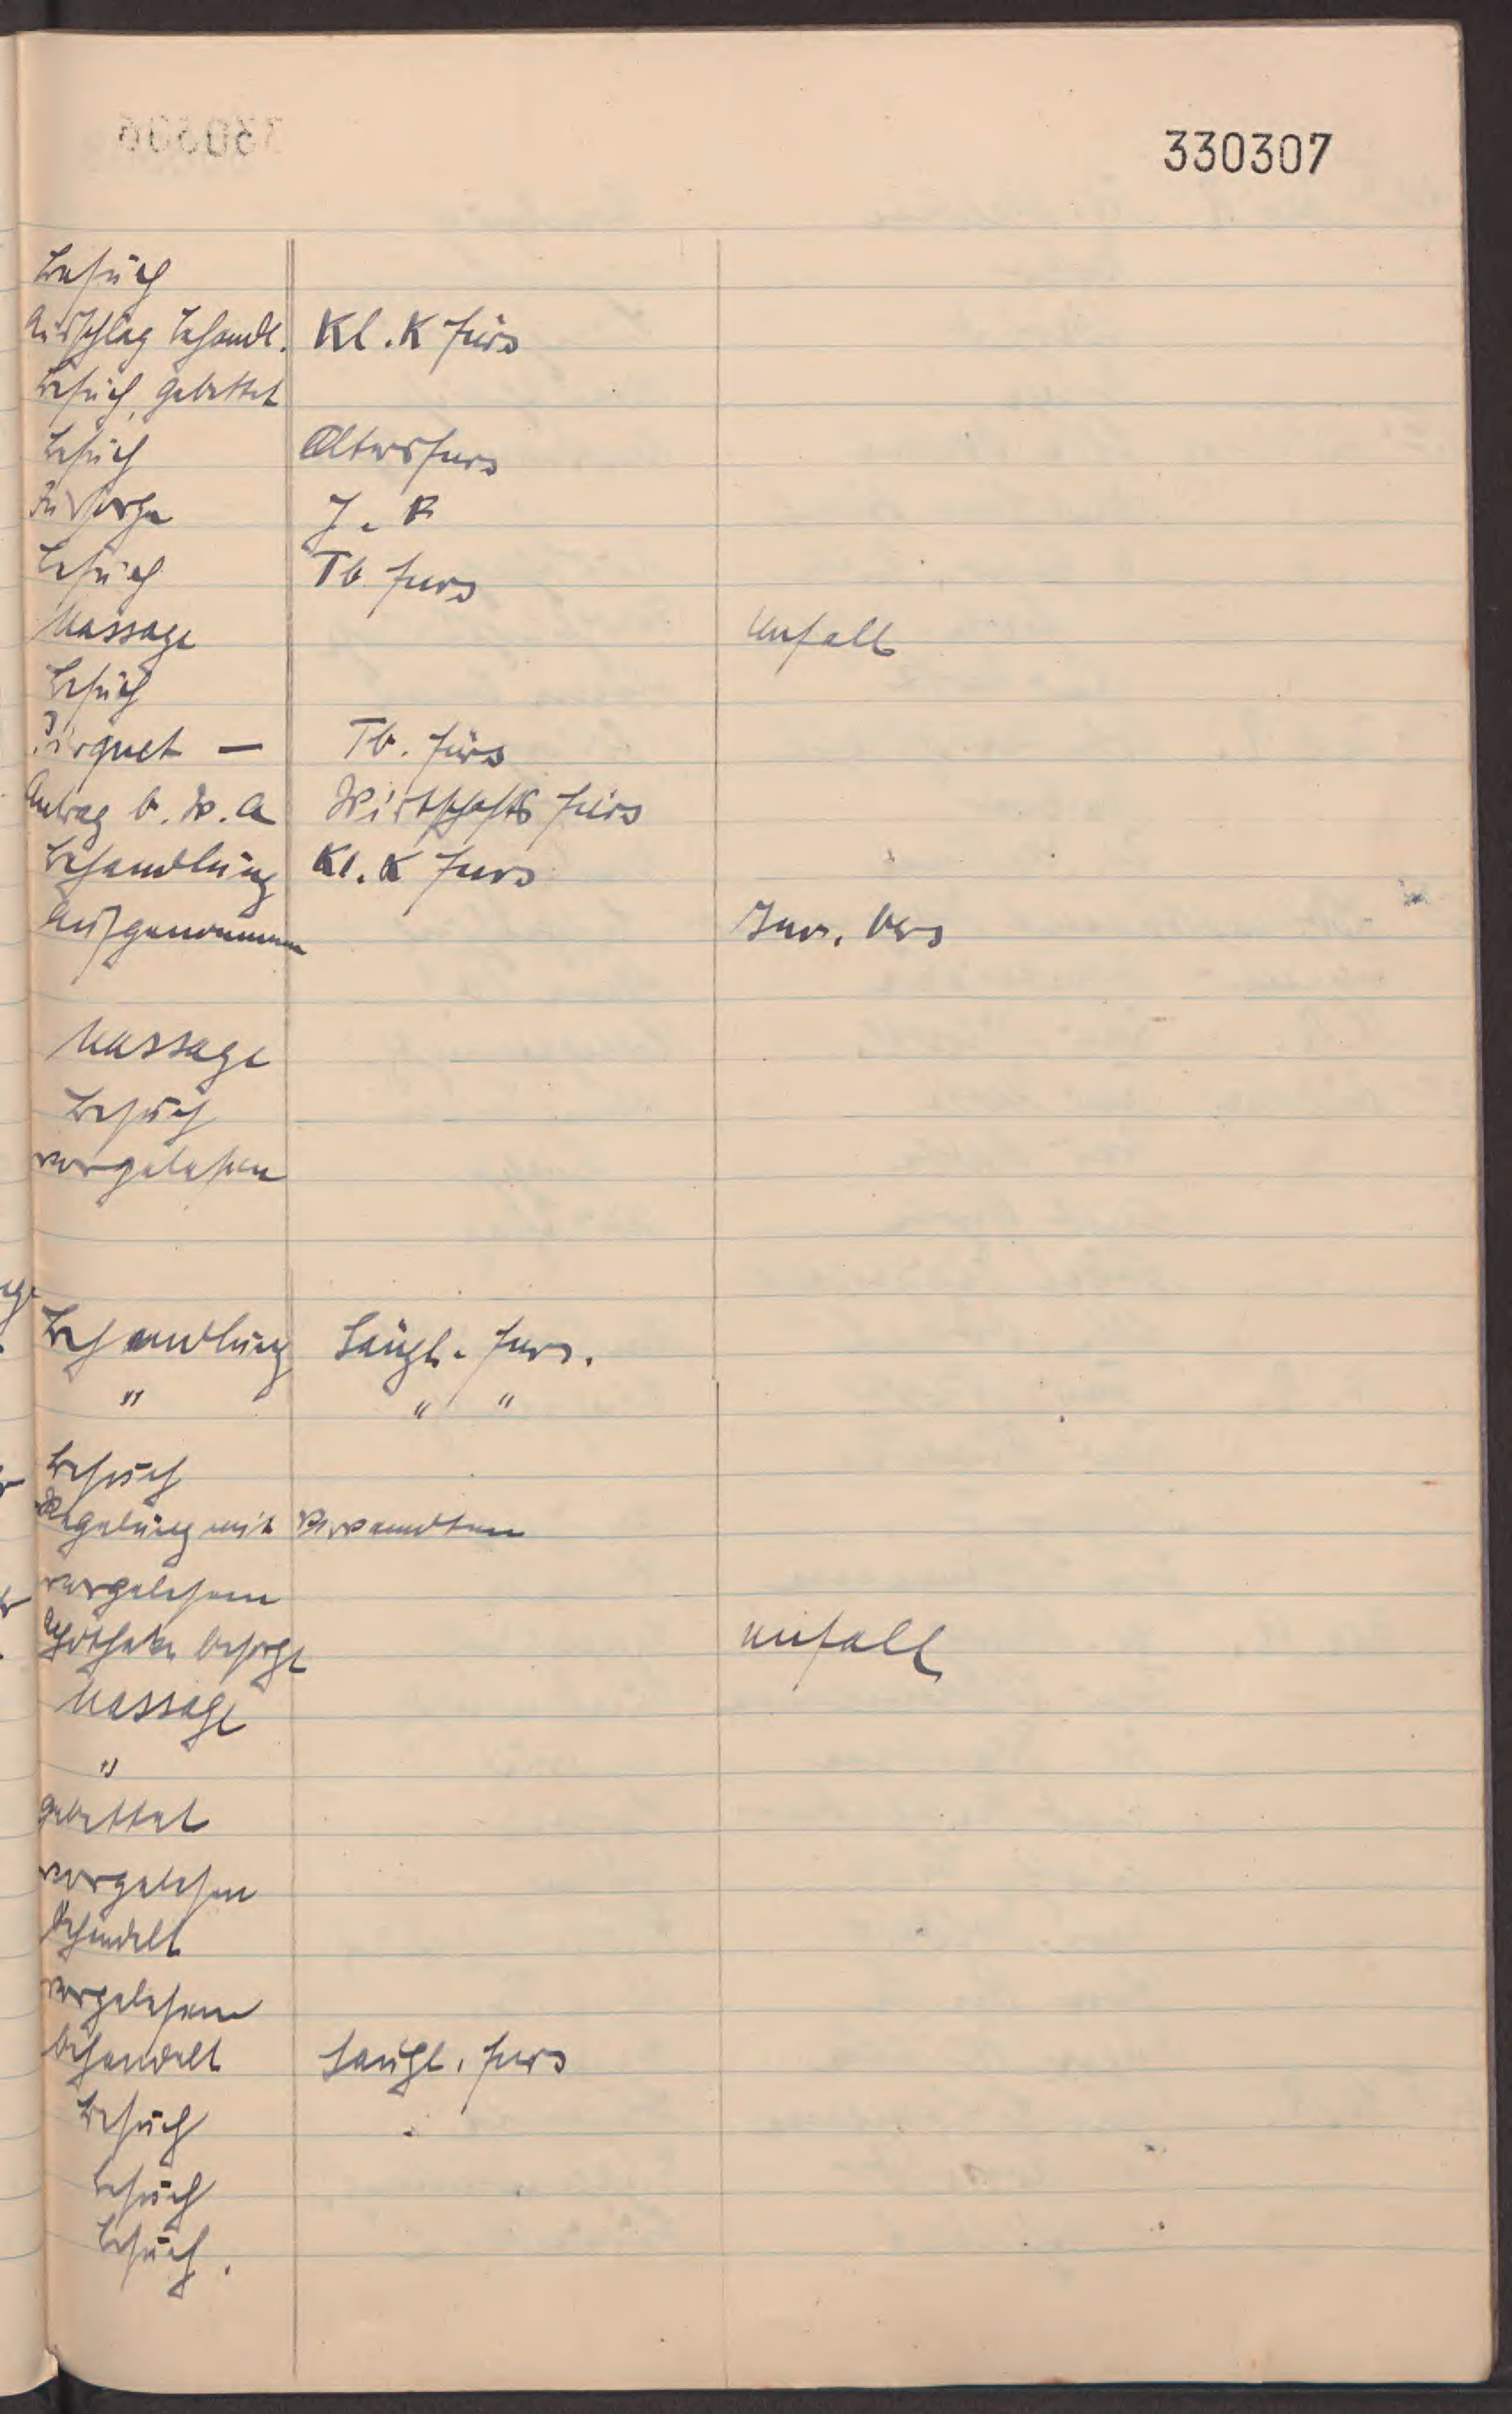 330307
Besuch
Ausschlag behandl. Kl. K fürs
Besuch, gebettet
Besuch Altersfurs
Fürsorge J. K
Besuch Tb. furs
Massage Unfall
Besuch
Pirquet — Tb. fürs
Antrag b. W. A Wirtschafts fürs
Behandlung Kl. K furs
Aufgenommen Inv. Vers
Massage
Besuch
vorgelesen
Behandlung Säugl. furs.
" " "
Besuch
Regelung mit Verwandten
vorgelesen
Apotheke besorgt Unfall
Massage
"
gebettet
vorgelesen
behandelt
vorgelesen
behandelt Säugl. furs
Besuch
Besuch
Besuch.